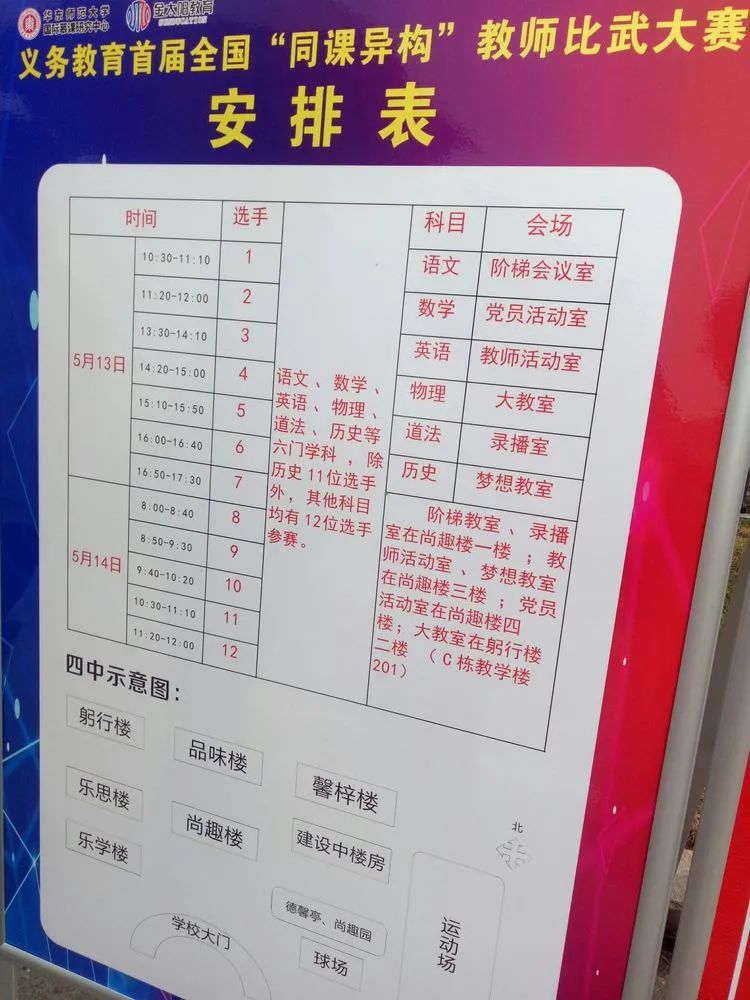 华东师范大学
国际慕课研究中心
金太阳教育
SUNDUCATION
义务教育首届全国“同课异构”教师比武大赛
安排表
时间 选手 科目 会场
5月13日
10:30-11:10 1
11:20-12:00 2
13:30-14:10 3
14:20-15:00 4
15:10-15:50 5
16:00-16:40 6
16:50-17:30 7
5月14日
8:00-8:40 8
8:50-9:30 9
9:40-10:20 10
10:30-11:10 11
11:20-12:00 12
语文、数学、
英语、物理、
道法、历史等
六门学科，除
历史11位选手
外，其他科目
均有12位选手
参赛。
语文 阶梯会议室
数学 党员活动室
英语 教师活动室
物理 大教室
道法 录播室
历史 梦想教室
阶梯教室、录播
室在尚趣楼一楼；教
师活动室、梦想教室
在尚趣楼三楼；党员
活动室在尚趣楼四
楼；大教室在躬行楼
二楼（C栋教学楼
201）
四中示意图：
躬行楼
品味楼
馨梓楼
乐思楼
尚趣楼
建设中楼房
乐学楼
北
德馨亭、尚趣园
运动场
学校大门
球场